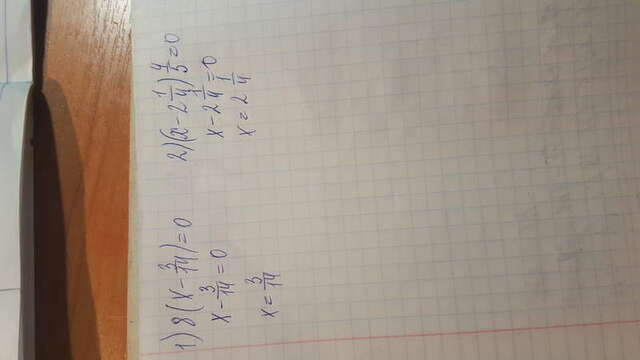 1) 8(x - 3/14) = 0
x - 3/14 = 0
x = 3/14
2) (x - 2 1/4) 4/5 = 0
x - 2 1/4 = 0
x = 2 1/4